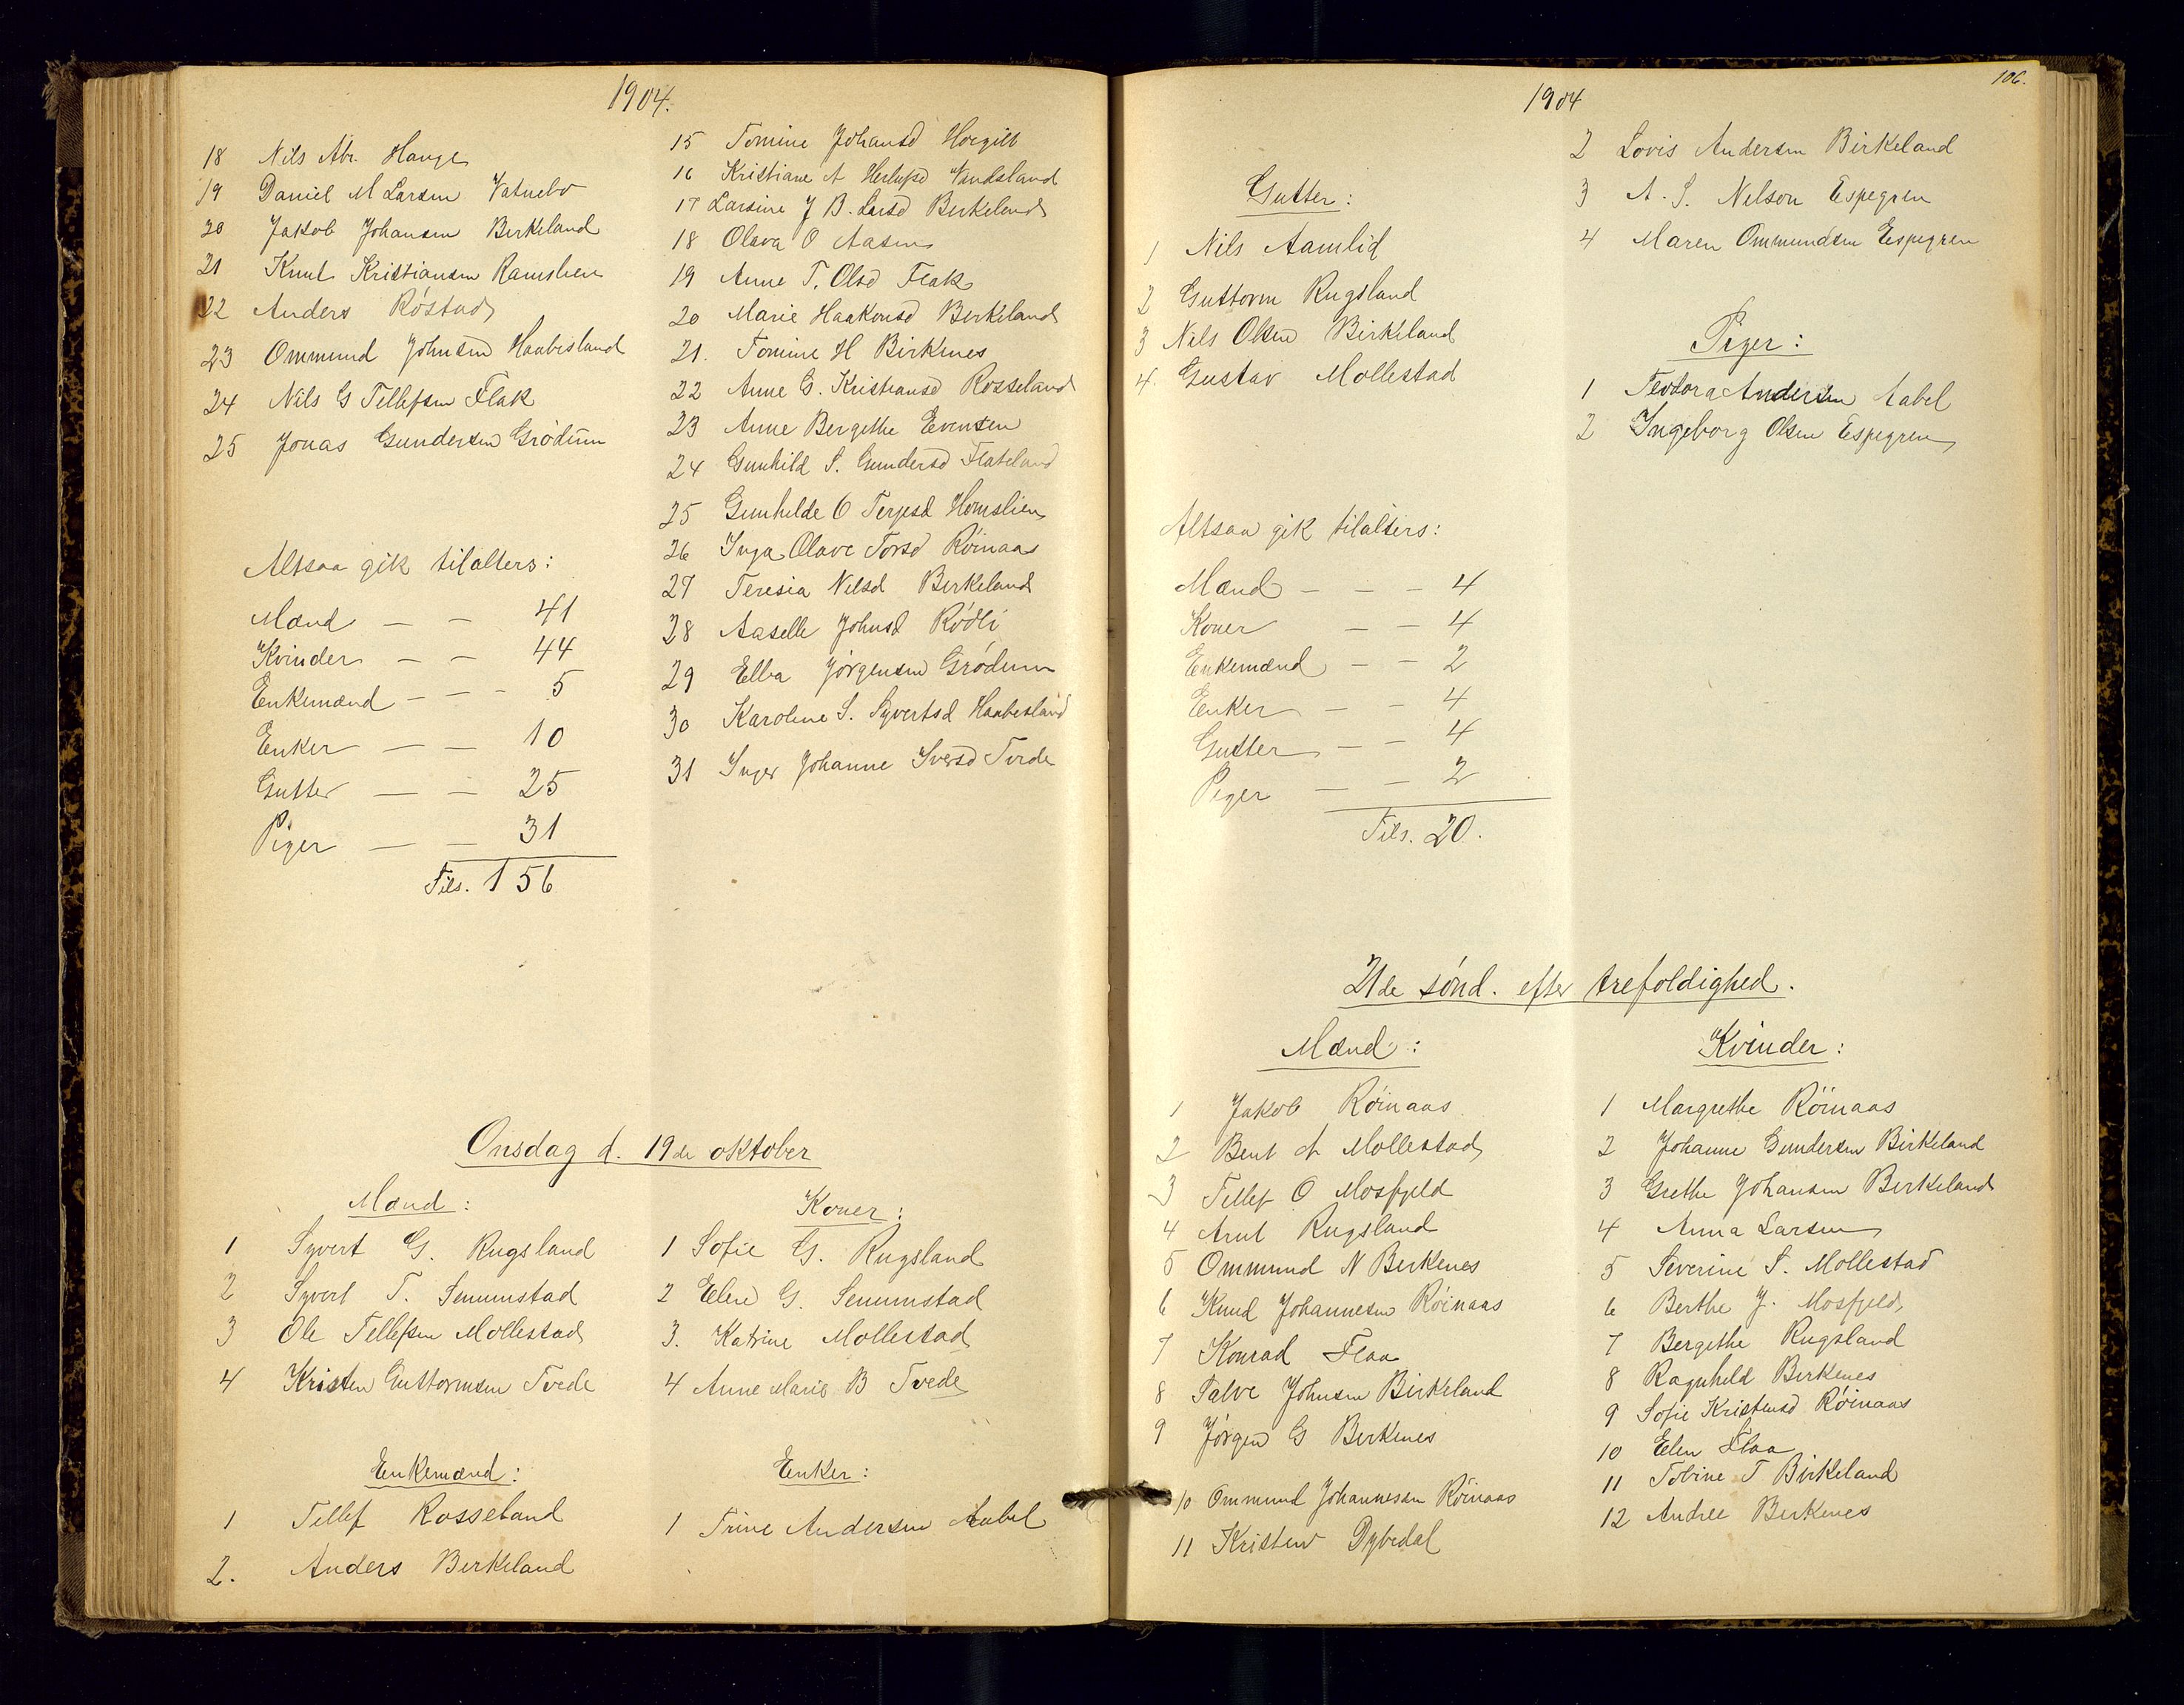 1904.
18 Nils Abr. Hauge
19 Daniel M Larsen Vatnebo
20 Jakob Johansen Birkeland
21 Knut Kristiansen Ramslien
22 Anders Röstad
23 Ommund Johnsen Haabesland
24 Nils G Tellefsen Flak
25 Jonas Gundersen Grödum
Altsaa gik tilalters:
Mænd — — 41
Kvinder — — 44
Enkemænd — — - 5
Enker — — 10
Gutter — — 25
Piger — — 31
Tils. 156
15 Tomine Johansd
16 Kristiane A Vandsland
17 Larsine J B. Larsd Birkeland
18 Olava O Aasen
19 Anne T. Olsd Flak
20 Marie Haakonsd Birkeland
21. Tomine H Birkenes
22 Anne G. Kristiansd Rosseland
23 Anne Bergethe Evensen
24 Gunhild S. Gundersd Flateland
25 Gunhilde O Terjesd Homslien
26 Inga Olave Torsd Röinaas
27 Teresia Nilsd Birkeland
28 Aaselle Johnsd Rödli
29 Elba Jörgensen Grödum
30 Karoline S. Syvertsd Haabesland
31 Inger Johanne Iversd Tvede
Onsdag d. 19de oktober
Mænd:
1 Syvert G. Rugsland
2 Syvert T. Senumstad
3 Ole Tellefsen Mollestad
4 Kristen Guttormsen Tvede
Koner:
1 Sofie G. Rugsland
2 Elen G. Senumstad
3. Katrine Mollestad
4 Anne Marie B Tvede
Enkemænd:
1 Tellef Rosseland
2. Anders Birkeland
Enker:
1 Trine Andersen Aabel
106.
1904
2 Lovis Andersen Birkeland
3 A. S. Nelson Espegren
4 Maren Ommundsen Espegren
Gutter:
1 Nils Aamlid
2 Guttorm Rugsland
3 Nils Olsen Birkeland
4. Gustav Mollestad
Piger:
1 Teodora Andersen Aabel
2 Ingeborg Olsen Espegren
Altsaa gik tilalters:
Mænd — — — 4
Koner — — 4
Enkemænd — — 2
Enker — — 4
Gutter — — 4
Piger — — 2
Tils. 20.
21de sönd. efter trefoldighed.
Mænd:
1 Jakob Röinaas
2 Bent A Mollestad
3 Tellef O Mosfjeld
4 Arnt Rugsland
5 Ommund N Birkenes
6 Knud Johannesen Röinaas
7 Konrad Flaa
8 Talve Johnsen Birkeland
9 Jörgen G Birkenes
10 Ommund Johannesen Röinaas
11 Kristen Dybedal
Kvinder:
1 Margrethe Röinaas
2 Johanne Gundersen Birkeland
3 Grethe Johansen Birkeland
4 Anna Larsen
5 Severine S. Mollestad
6 Berthe J. Mosfjeld
7 Bergethe Rugsland
8 Ragnhild Birkenes
9 Sofie Kristensd Röinaas
10 Elen Flaa
11 Tobine T Birkeland
12 Birkenes